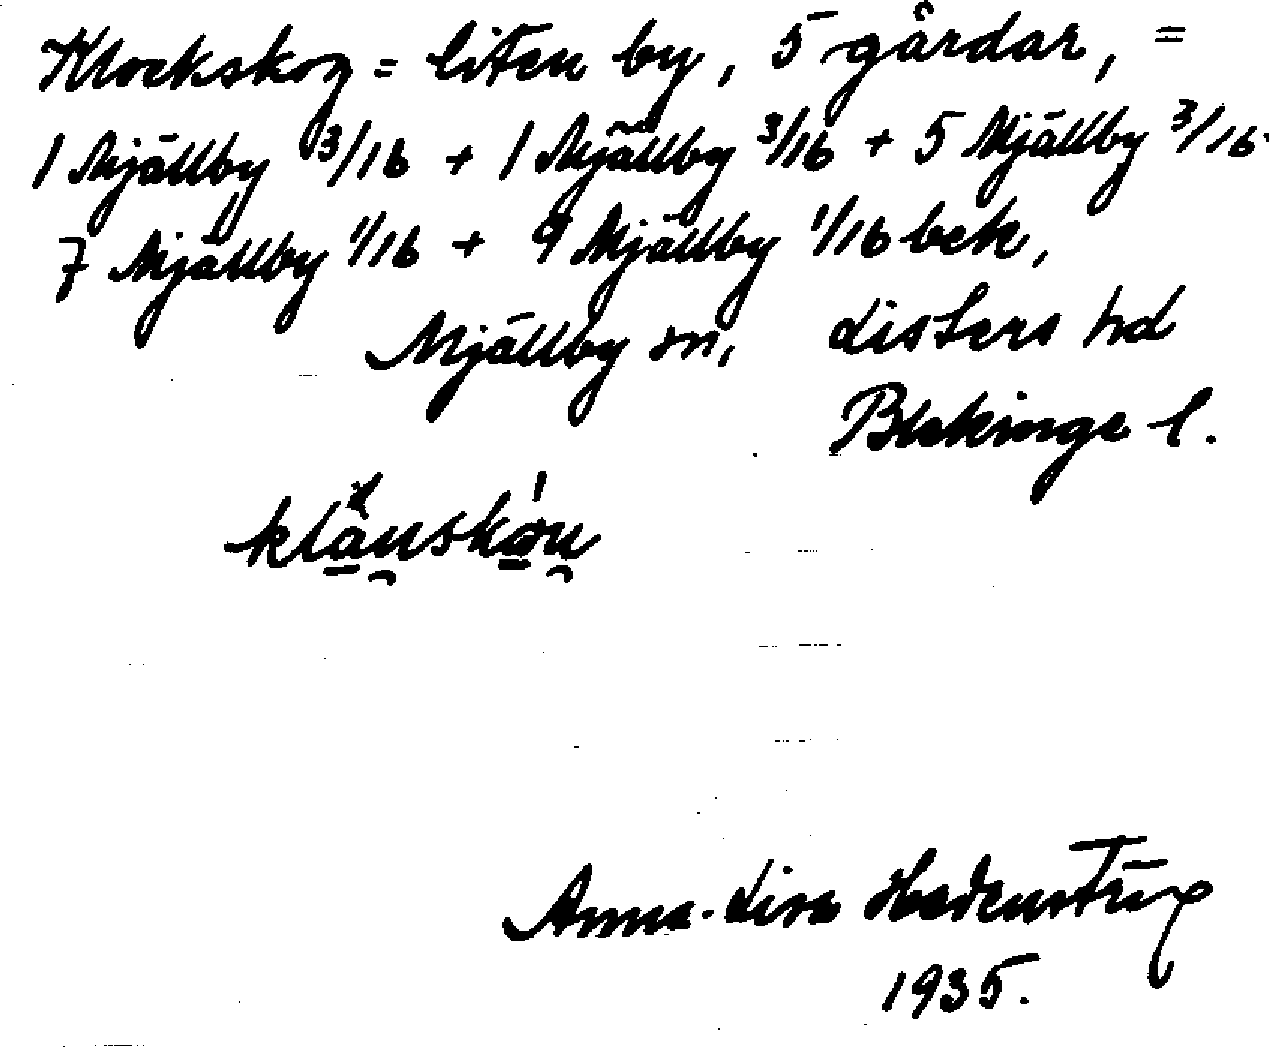 Klockskog = liten by, 5 gårdar, =
1 Mjällby 3/16 + 1 Mjällby 3/16 + 5 Mjällby 3/16.
7 Mjällby 1/16 + 9 Mjällby 1/16 bek,
Mjällby sn, Listers hd
Blekinge l.
Anna-Lisa
1935.